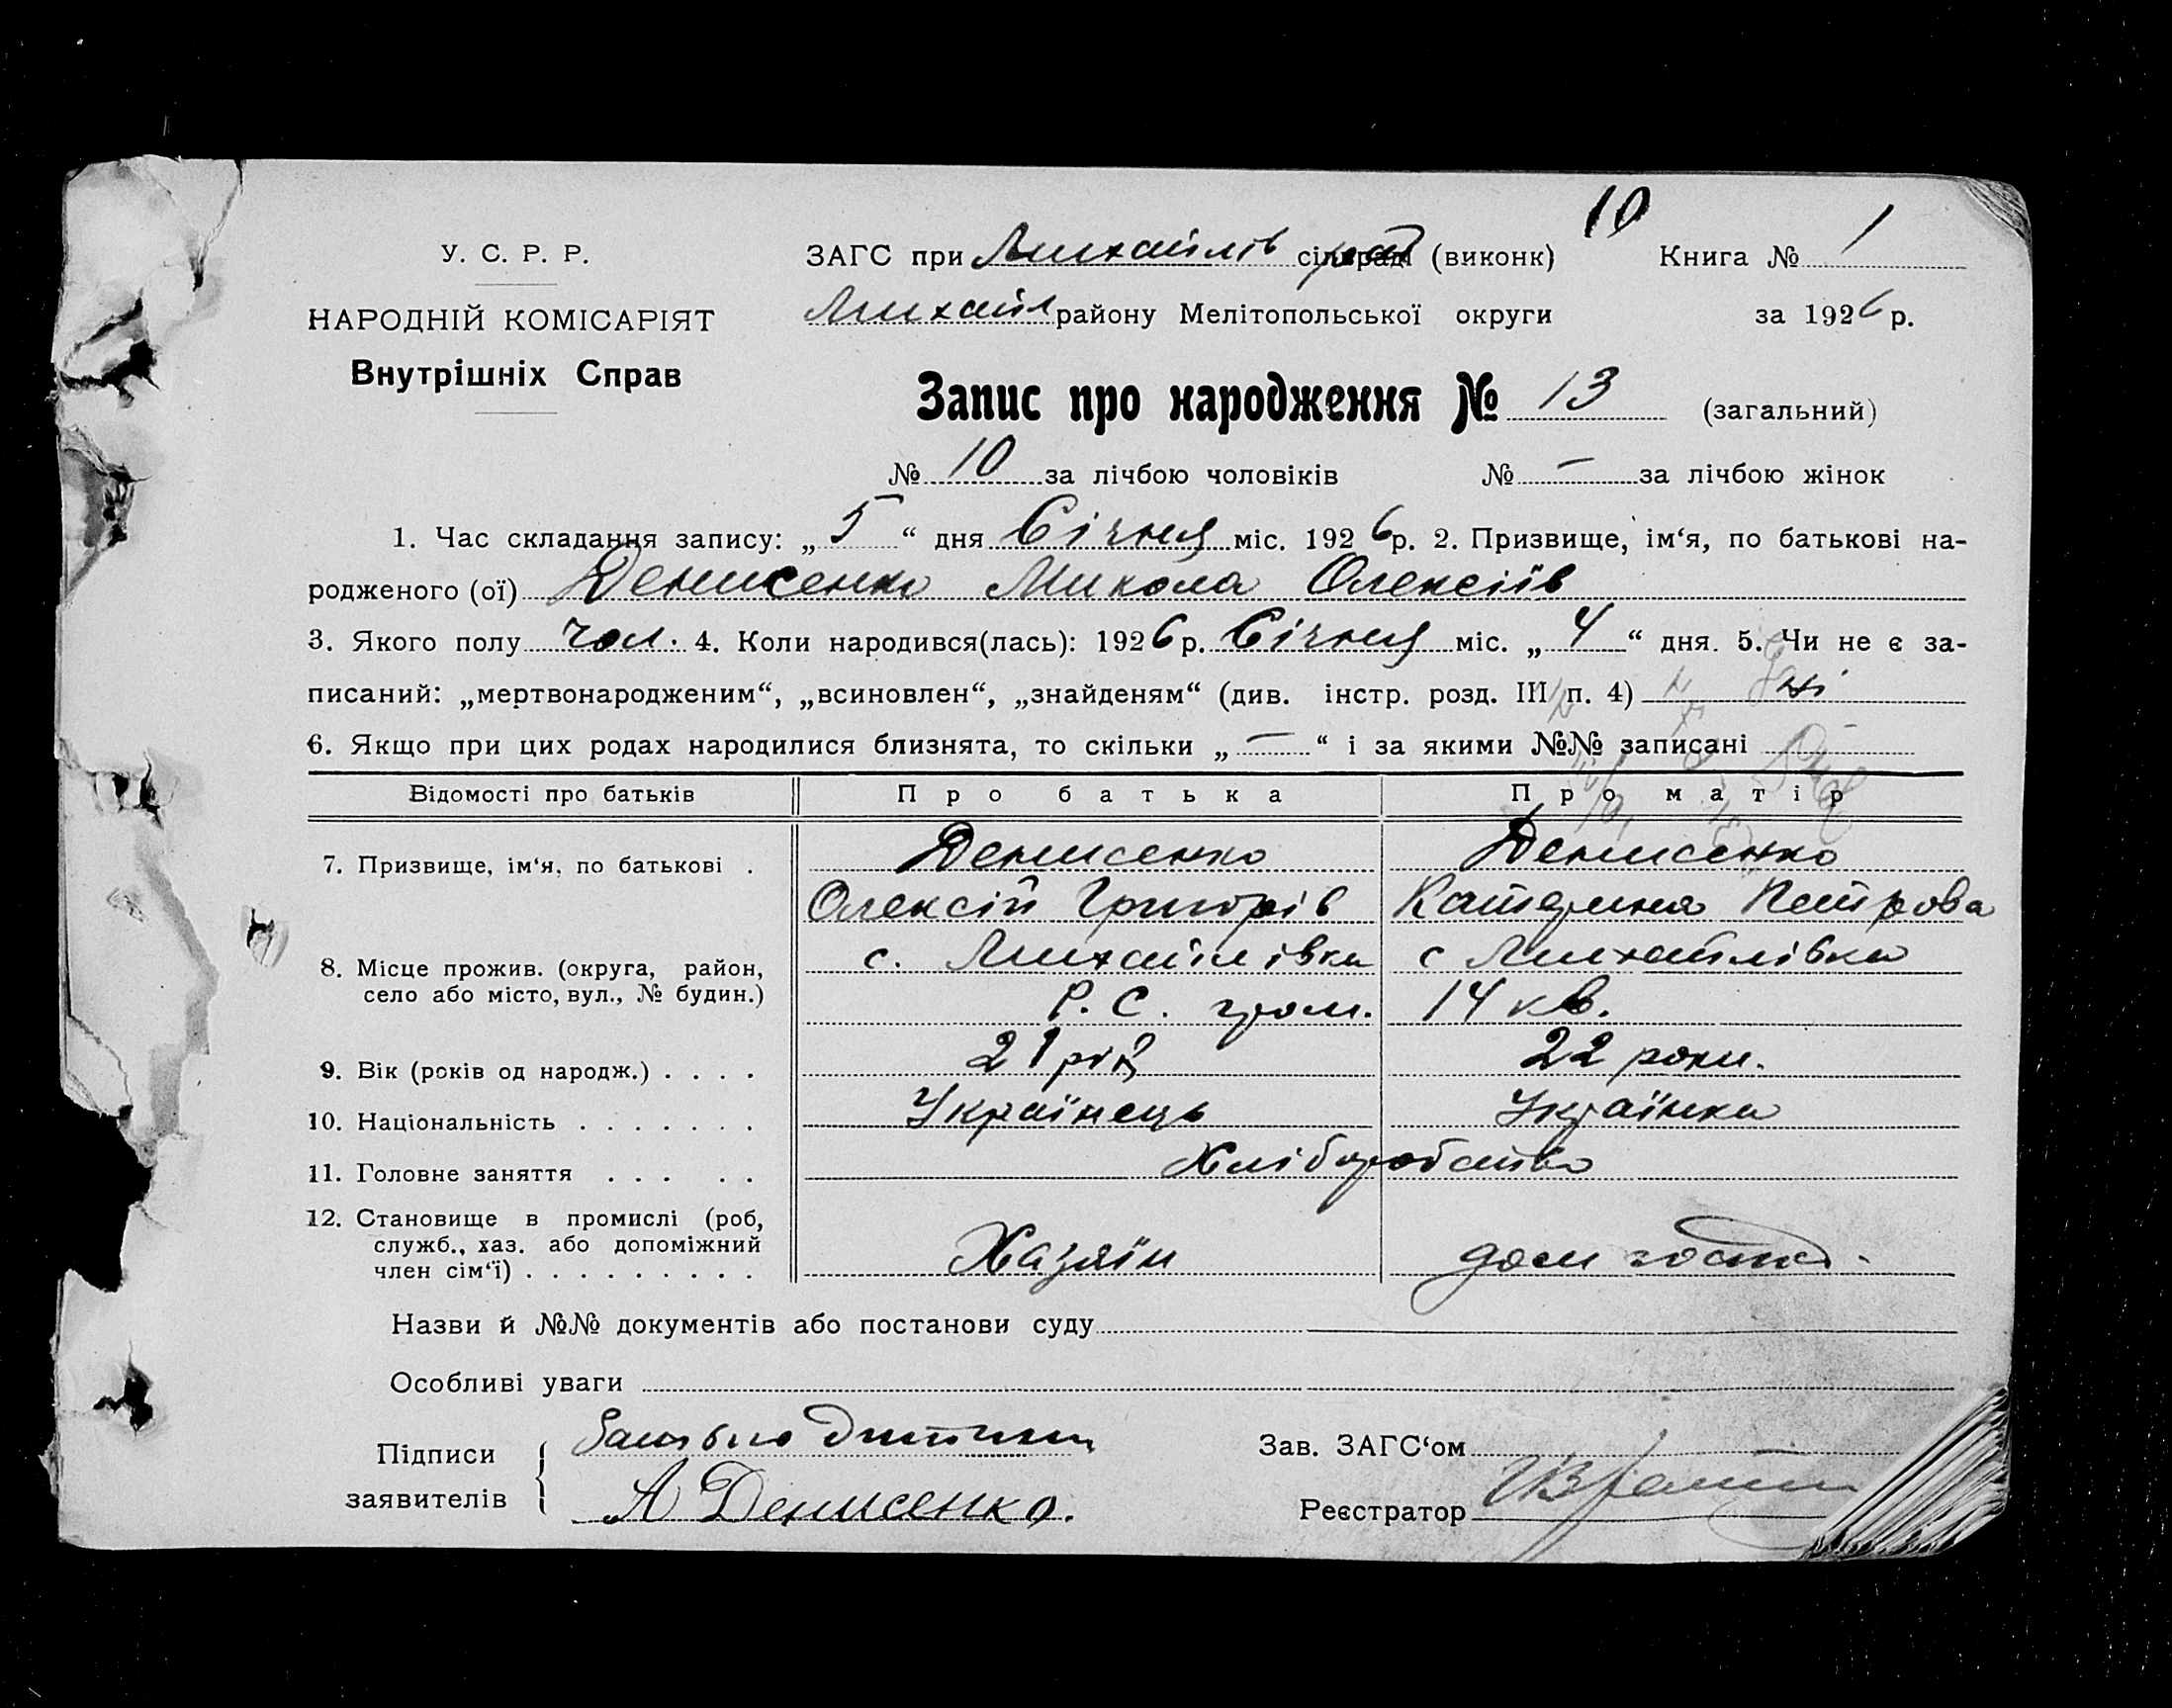 10
У. С. Р. Р.
ЗАГС при Михайлів сільраді (виконк) Книга № 1
НАРОДНІЙ КОМІСАРІЯТ
Михайл району Мелітопольської округи за 1926 р.
Внутрішніх Справ
Запис про народження № 13 (загальний)
№ 10 за лічбою чоловіків № — за лічбою жінок
1. Час складання запису: „5“ дня Січня міс. 1926р. 2. Призвище, ім‘я, по батькові на-
родженого (ої) Денисенко Микола Олексіїв
3. Якого полу чол. 4. Коли народився(лась): 1926 р. Січня міс. „4“ дня. 5. Чи не є за-
писаний: „мертвонародженим“, „всиновлен“, „знайденям“ (див. інстр. розд. III п. 4) ні
6. Якщо при цих родах народилися близнята, то скільки „—“ і за якими №№ записані —
Відомості про батьків Про батька Про матір
7. Призвище, ім‘я, по батькові . Денисенко Денисенко
Олексій Григорів Катерина Петрова
8. Місце прожив. (округа, район, с. Михайлівка с Михайлівка
село або місто, вул., № будин.) Р. С. гром. 14 кв.
9. Вік (років од народж.) . . . . 21 рік 22 роки.
10. Національність . . . . . . . Українець Українка
11. Головне заняття . . . . . Хліборобство
12. Становище в промислі (роб,
служб., хаз. або допоміжний Хазяїн дом госп.
член сім‘ї) . . . . . . . . .
Назви й №№ документів або постанови суду
Особливі уваги
Підписи Батько дитини
заявителів А Денисенко.
Зав. ЗАГС‘ом
Реєстратор